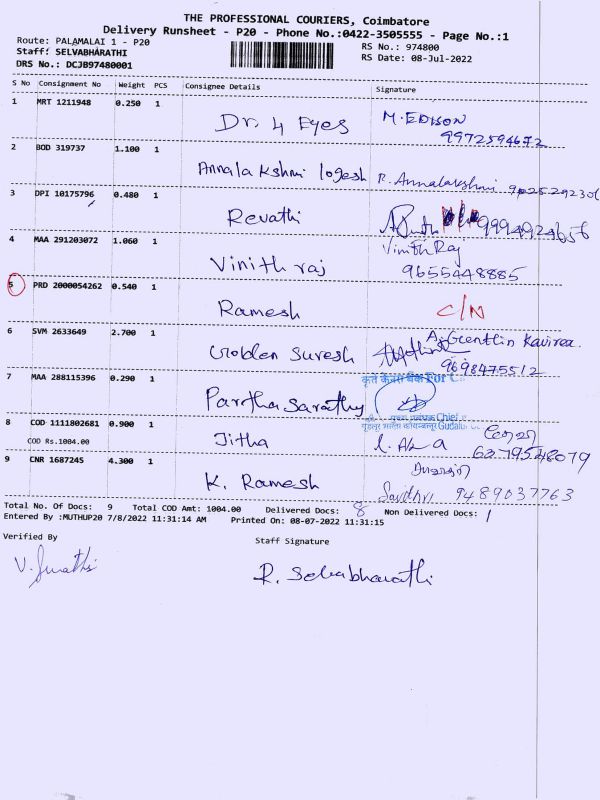 THE PROFESSIONAL COURIERS, Coimbatore
Delivery Runsheet - P20 - Phone No.:0422-3505555 - Page No.:1
Route: PALAMALAI 1 - P20
RS No.: 974800
Staff: SELVABHARATHI
RS Date: 08-Jul-2022
DRS No.: DCJB97480001
S No Consignment No Weight PCS Consignee Details Signature
1 MRT 1211948 0.250 1 Dr. 4 Eyes M. EDISON
9972594672
2 BOD 319737 1.100 1 Annalakshmi logesh R. Annalakshmi
3 DPI 10175796 0.480 1 Revathi 9994924656
4 MAA 291203072 1.060 1 Vinith raj Vinith Raj
9655448885
5 PRD 2000054262 0.540 1 Ramesh C/N
6 SVM 2633649 2.700 1 Golden Suresh
9698475512
7 MAA 288115396 0.290 1 Partha Sarathy
कृते केनरा बैंक For C
Chief
8 COD 1111802681 0.900 1 Jitha
COD Rs.1004.00
6279548079
9 CNR 1687245 4.300 1 K. Ramesh
9489037763
Total No. Of Docs: 9 Total COD Amt: 1004.00 Delivered Docs: 8 Non Delivered Docs: 1
Entered By :MUTHUP20 7/8/2022 11:31:14 AM Printed On: 08-07-2022 11:31:15
Verified By
Staff Signature
R. Selvabharathi